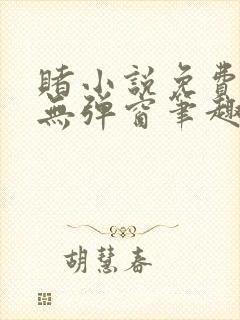 賭小説免費
無彈窗筆趣
胡慧春